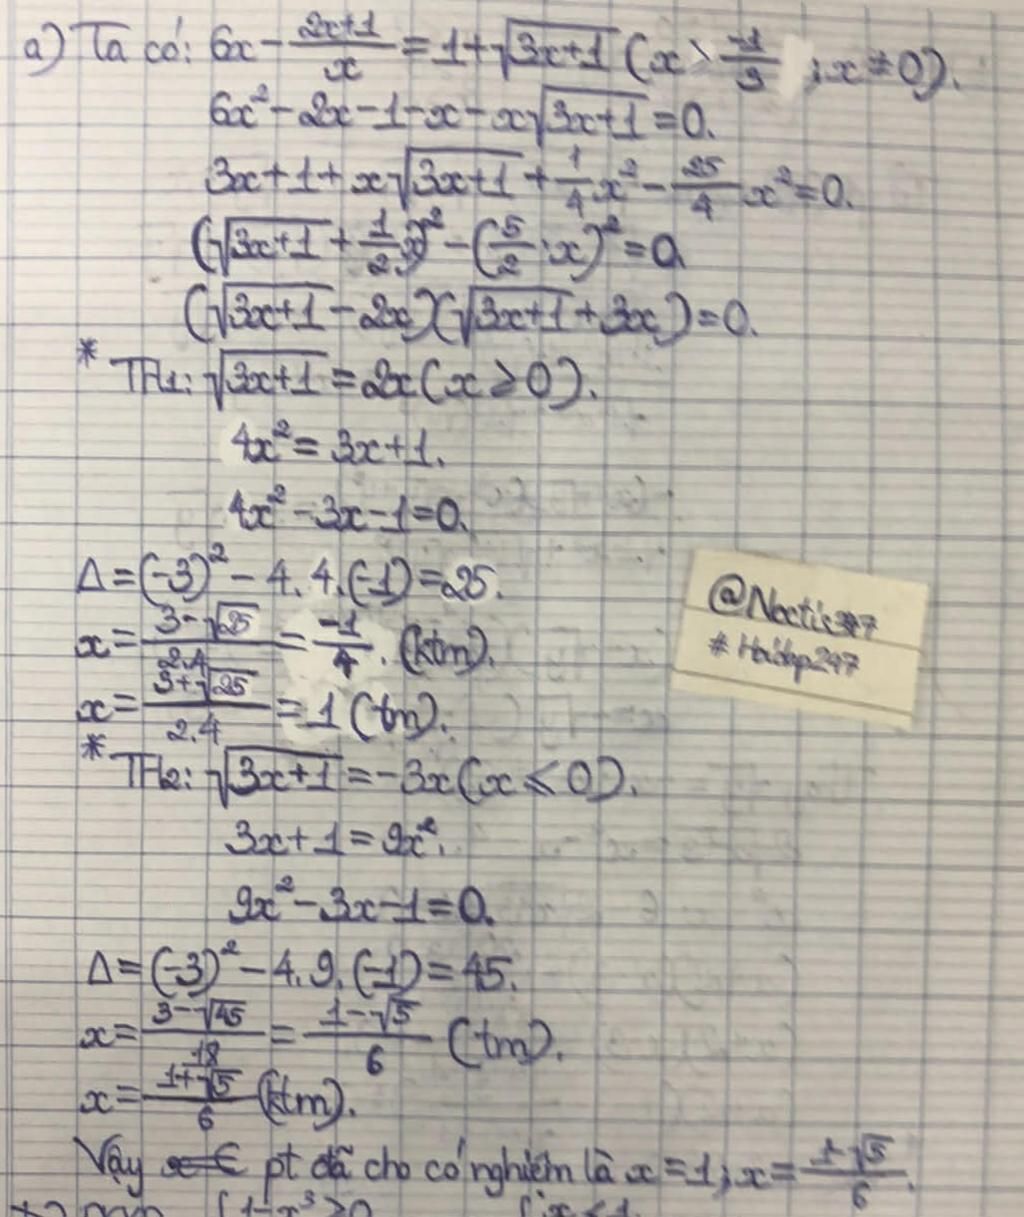 a) Ta có: 6x - (2x+1)/x = 1 + √(3x+1) (x > -1/3 ; x ≠ 0).
6x² - 2x - 1 - x - x√(3x+1) = 0.
3x + 1 + x√(3x+1) + 1/4 x² - 25/4 x² = 0.
(√(3x+1) + 1/2 x)² - (5/2 . x)² = 0.
(√(3x+1) - 2x)(√(3x+1) + 3x) = 0.
* TH1: √(3x+1) = 2x (x ≥ 0).
4x² = 3x + 1.
4x² - 3x - 1 = 0.
Δ = (-3)² - 4.4.(-1) = 25.
x = (3 - √25)/(2.4) = -1/4. (ktm).
x = (3 + √25)/(2.4) = 1 (tm).
@Noctis347
#Hoidap247
* TH2: √(3x+1) = -3x (x ≤ 0).
3x + 1 = 9x².
9x² - 3x - 1 = 0.
Δ = (-3)² - 4.9.(-1) = 45.
x = (3 - √45)/18 = (1 - √5)/6 (tm).
x = (1 + √5)/6 (ktm).
Vậy pt đã cho có nghiệm là x = 1; x = (1 - √5)/6.
1 - x³ ≥ 0